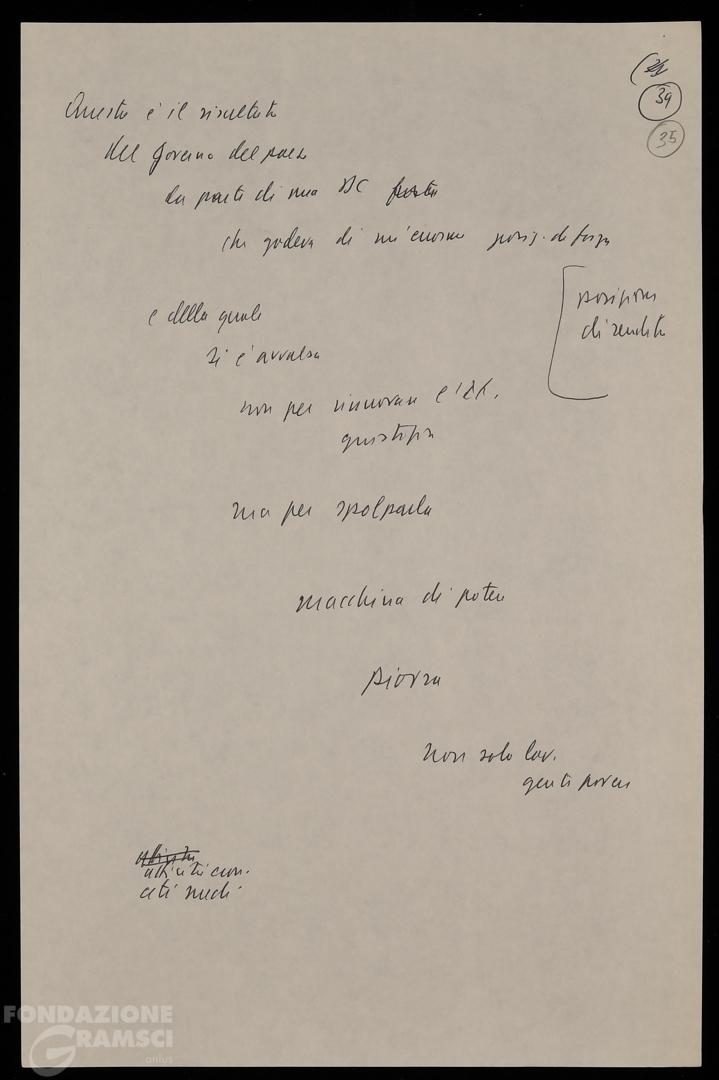 39
35
Questo è il risultato
del governo del paese
da parte di una DC
che godeva di un'enorme posiz. di forza
posizione
di rendita
e della quale
si è avvalsa
non per rinnovare l'It.
giustizia
ma per spolparla
macchina di potere
piovra
non solo lav.
gente povera
attività econ.
ceti medi
FONDAZIONE
GRAMSCI
onlus